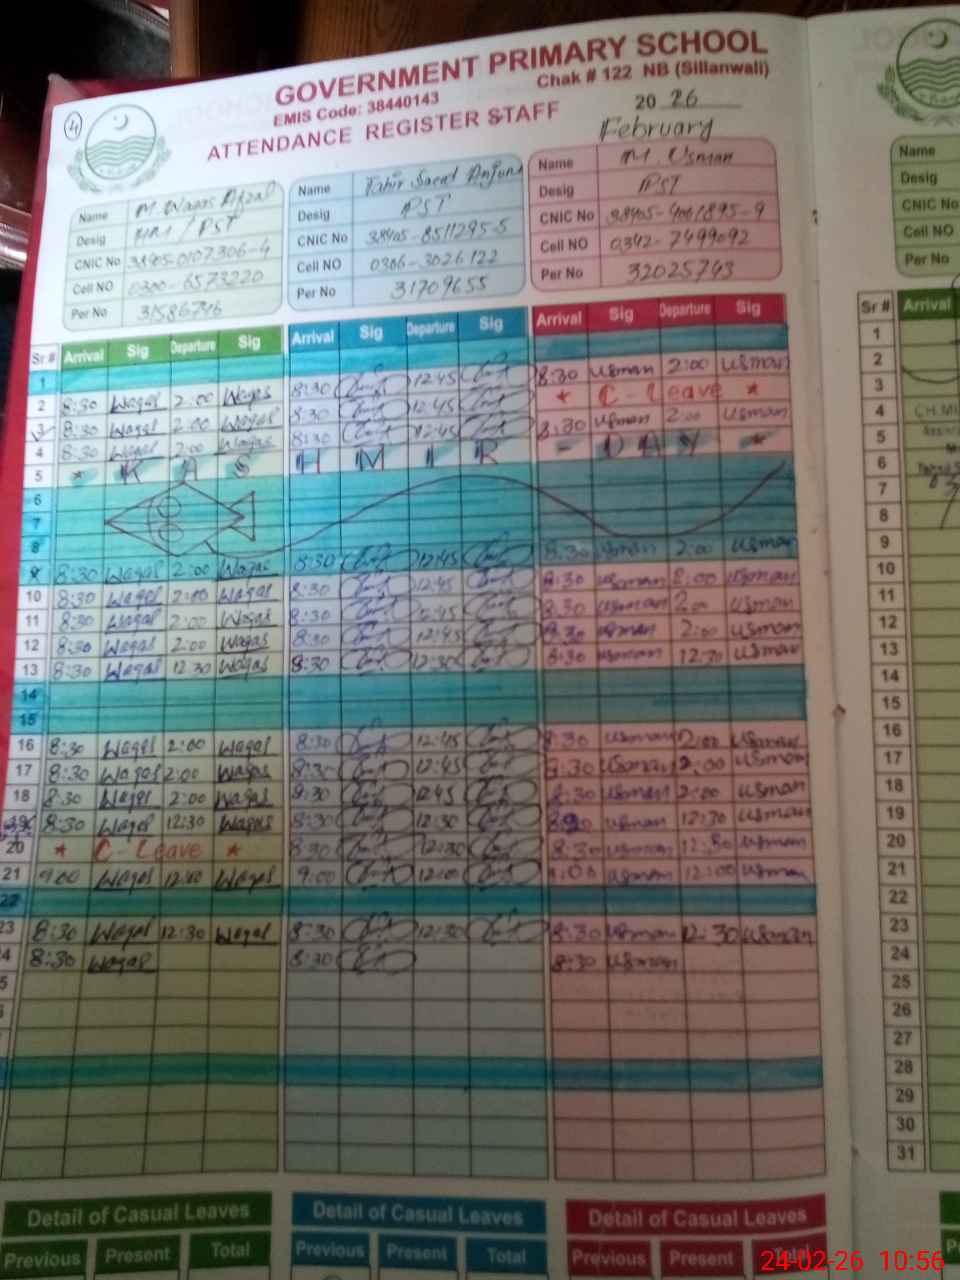 4
GOVERNMENT PRIMARY SCHOOL
Chak # 122 NB (Sillanwali)
EMIS Code: 38440143
ATTENDANCE REGISTER STAFF
2026
February
Name M. Waqas Afzal
Desig /PST
CNIC No 38405-0107306-4
Cell NO 0300-6573220
Per No 31586746
Name Tahir Saeed Anjum
Desig PST
CNIC No 38405-8511295-5
Cell NO 0306-3026122
Per No 31709655
Name M. Usman
Desig PST
CNIC No
Cell NO 0342-7499092
Per No 32025743
Sr # Arrival Sig Departure Sig Arrival Sig Departure Sig Arrival Sig Departure Sig
1
2 8:30 Waqas 2:00 Waqas 8:30 12:45 8:30 usman 2:00 usman
3 8:30 Waqas 2:00 Waqas 8:30 12:45 * C-Leave *
4 8:30 Waqas 2:00 Waqas 8:30 12:45 8:30 usman 2:00 usman
5 * K A S H M I R - D A Y *
6
7
8
9 8:30 Waqas 2:00 Waqas 8:30 12:45 8:30 usman 2:00 usman
10 8:30 Waqas 2:00 Waqas 8:30 12:45 8:30 usman 2:00 usman
11 8:30 Waqas 2:00 Waqas 8:30 12:45 8:30 usman 2:00 usman
12 8:30 Waqas 2:00 Waqas 8:30 12:45 8:30 usman 2:00 usman
13 8:30 Waqas 12:30 Waqas 8:30 12:30 8:30 usman 12:30 usman
14
15
16 8:30 Waqas 2:00 Waqas 8:30 12:45 8:30 usman 2:00 usman
17 8:30 Waqas 2:00 Waqas 8:30 12:45 8:30 usman 2:00 usman
18 8:30 Waqas 2:00 Waqas 8:30 12:45 8:30 usman 2:00 usman
8:30 Waqas 12:30 Waqas 8:30 12:30 8:30 usman 12:30 usman
20 * C-Leave * 8:30 12:30 8:30 usman 12:30 usman
21 9:00 Waqas 12:00 Waqas 9:00 12:00 9:00 usman 12:00 usman
22
23 8:30 Waqas 12:30 Waqas 8:30 12:30 8:30 usman 12:30 usman
8:30 Waqas 8:30 8:30 usman
Detail of Casual Leaves
Previous Present Total
Detail of Casual Leaves
Previous Present Total
Detail of Casual Leaves
Previous Present Total
Name
Desig
CNIC No
Cell NO
Per No
Sr # Arrival
1
2
3
4
5
6
7
8
9
10
11
12
13
14
15
16
17
18
19
20
21
22
23
24
25
26
27
28
29
30
31
24-02-26 10:56